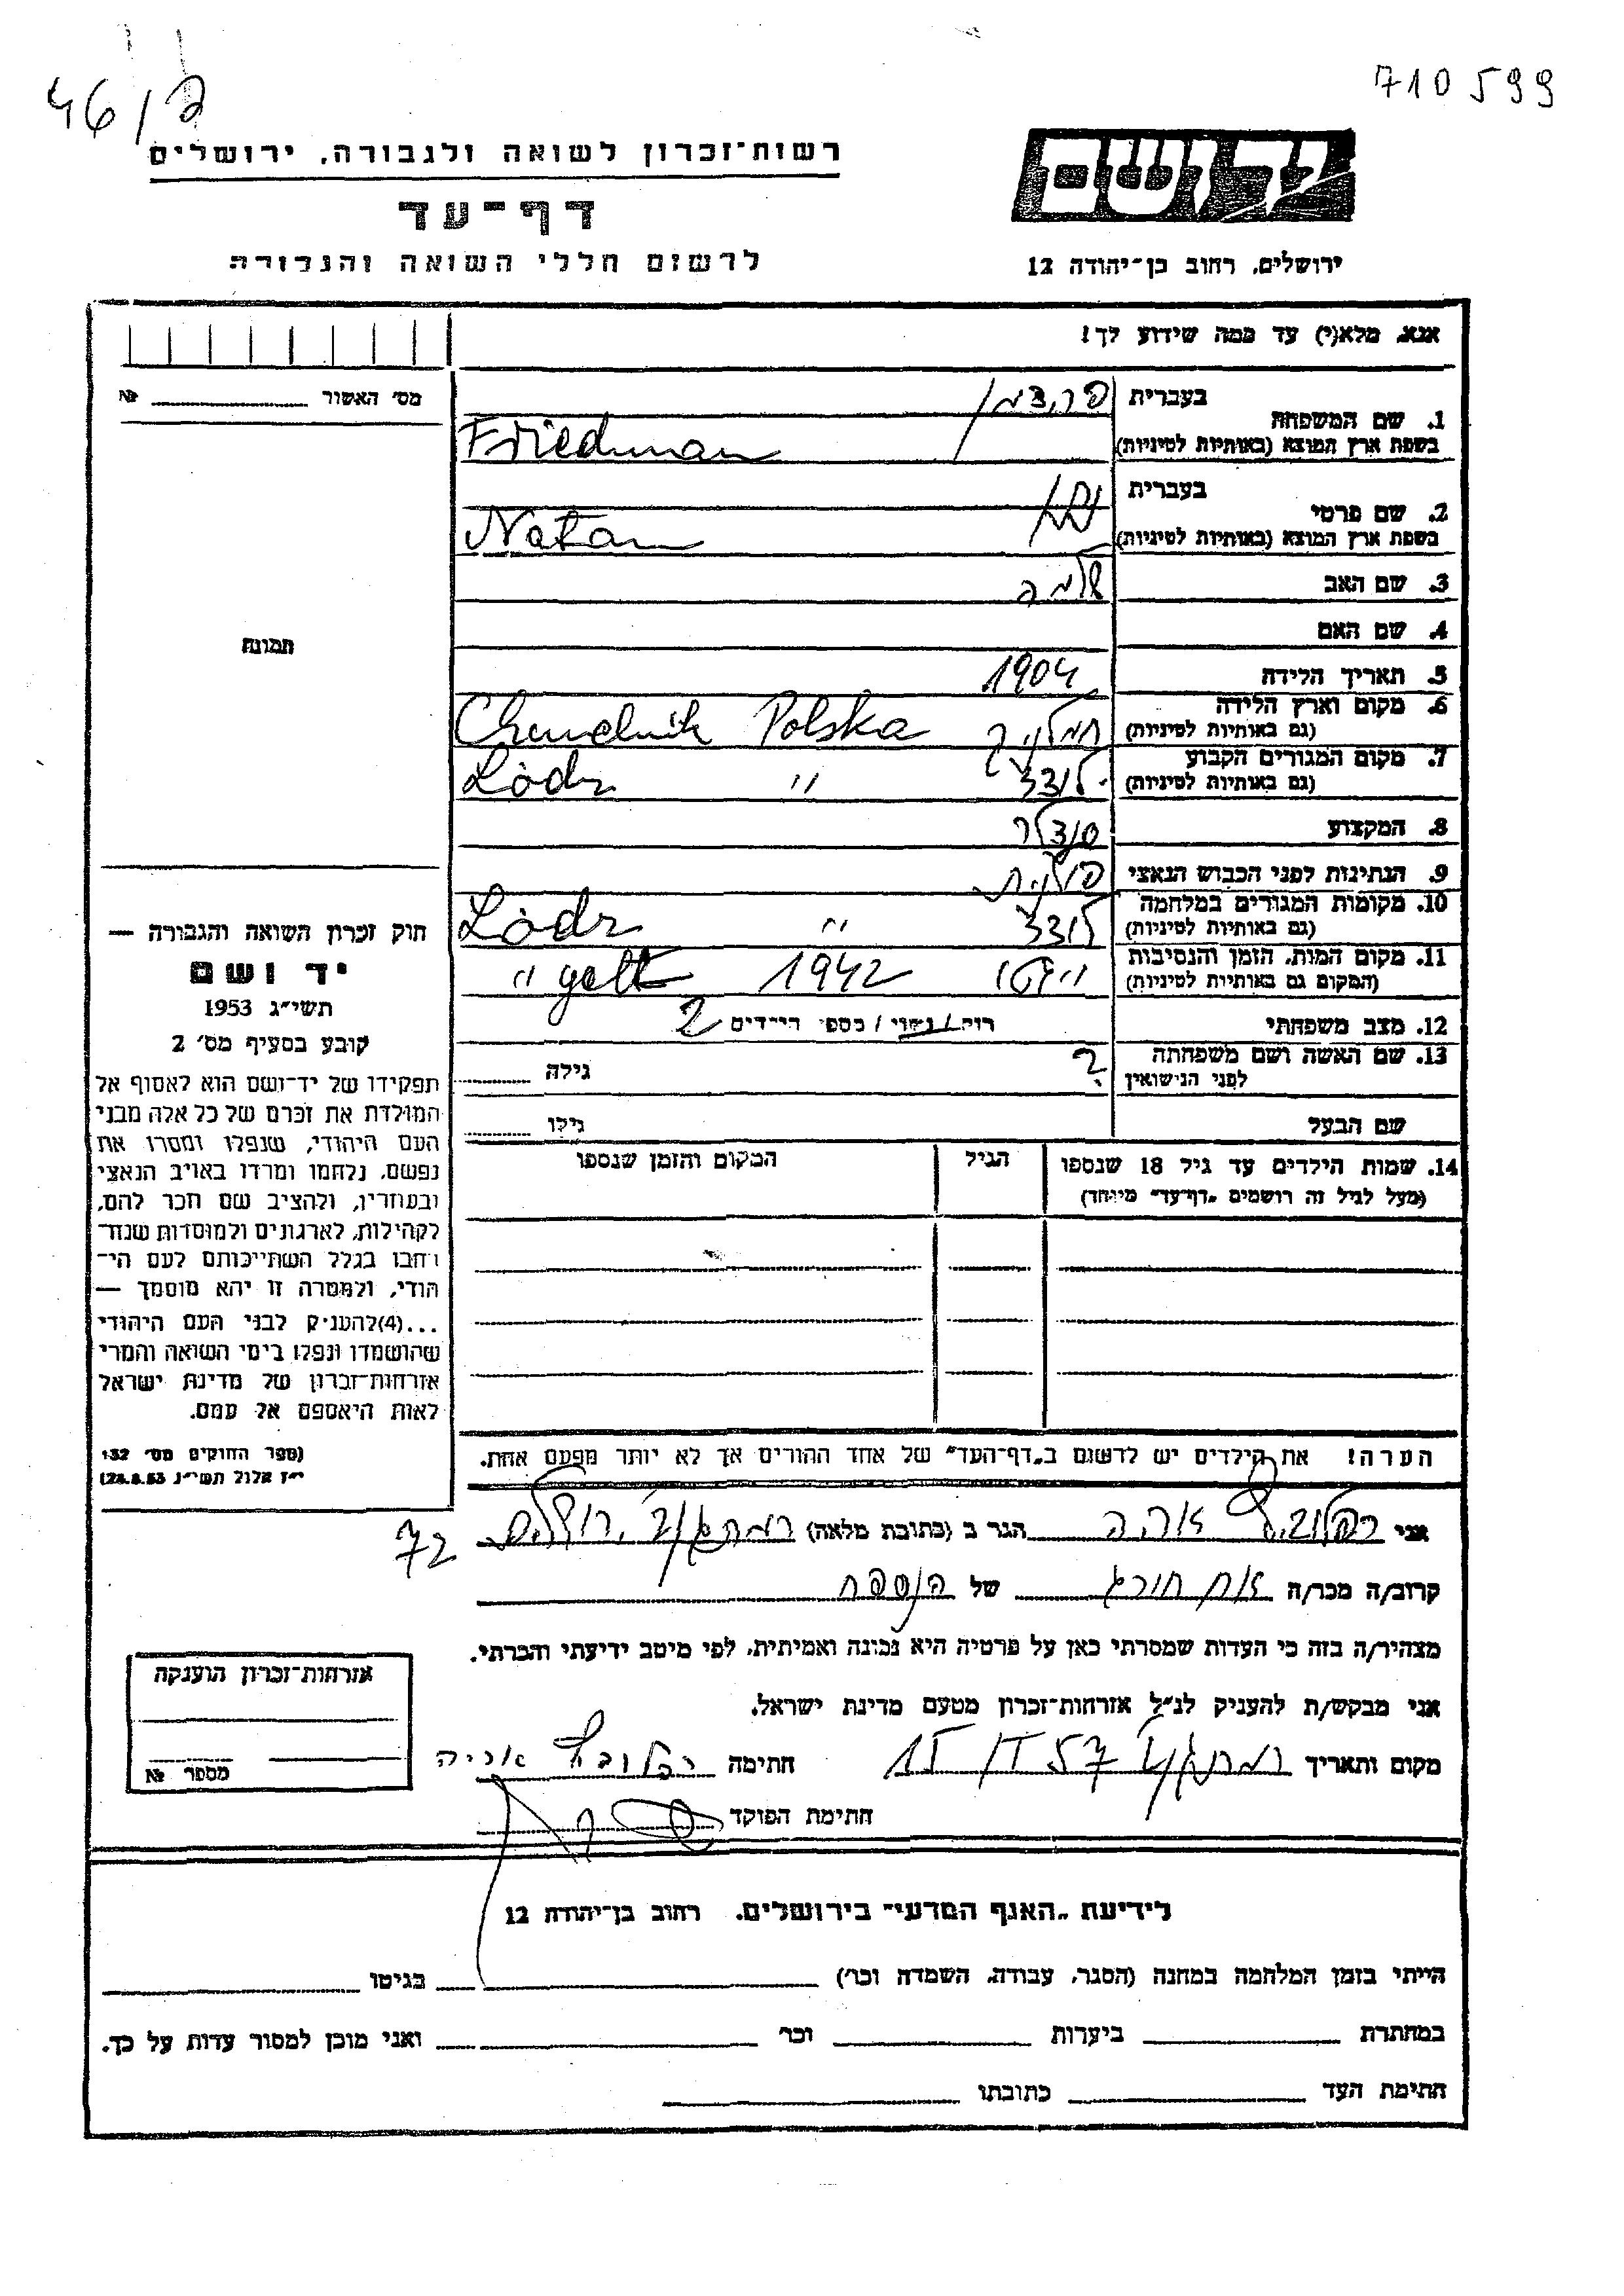 46/2
710599
רשות־זכרון לשואה ולגבורה, ירושלים
יד ושם
דף־עד
לרשום חללי השואה והגבורה
ירושלים, רחוב בן־יהודה 12
אנא, מלא(י) עד כמה שידוע לך!
מס׳ האשור №
1. שם המשפחה
בעברית פרידמן
בשפת ארץ המוצא (באותיות לטיניות) Friedman
2. שם פרטי
בעברית נתן
בשפת ארץ המוצא (באותיות לטיניות) Natan
3. שם האב שלמה
4. שם האם
תמונה
5. תאריך הלידה 1904
6. מקום וארץ הלידה
(גם באותיות לטיניות) חמלניק Chmelnik Polska
7. מקום המגורים הקבוע
(גם באותיות לטיניות) לודז Lòdz "
8. המקצוע סנדלר
9. הנתינות לפני הכבוש הנאצי פולנית
10. מקומות המגורים במלחמה
(גם באותיות לטיניות) לודז Lòdz "
11. מקום המות, הזמן והנסיבות
(המקום גם באותיות לטיניות) " גטו 1942 " gett
12. מצב משפחתי רווק / נשוי / מספר הילדים 2
13. שם האשה ושם משפחתה
לפני הנישואין ? גילה
שם הבעל גילו
14. שמות הילדים עד גיל 18 שנספו הגיל המקום והזמן שנספו
(מעל לגיל זה רושמים „דף־עד״ מיוחד)
חוק זכרון השואה והגבורה —
יד ושם
תשי״ג 1953
קובע בסעיף מס׳ 2
תפקידו של יד־ושם הוא לאסוף אל
המולדת את זכרם של כל אלה מבני
העם היהודי, שנפלו ומסרו את
נפשם, נלחמו ומרדו באויב הנאצי
ובעוזריו, ולהציב שם וזכר להם,
לקהילות, לארגונים ולמוסדות שנח־
רבו בגלל השתייכותם לעם הי־
הודי, ולמטרה זו יהא מוסמך —
...(4)להעניק לבני העם היהודי
שהושמדו ונפלו בימי השואה והמרי
אזרחות־זכרון של מדינת ישראל
לאות היאספם אל עמם.
(ספר החוקים מס׳ 132
י״ז אלול תשי״ג 28.8.53)
הערה! את הילדים יש לרשום ב„דף־העד״ של אחד ההורים אך לא יותר מפעם אחת.
אני אריה הגר ב (כתובת מלאה) רמת גן
72
קרוב/ה מכר/ה אח חורג של הנספה
מצהיר/ה בזה כי העדות שמסרתי כאן על פרטיה היא נכונה ואמיתית, לפי מיטב ידיעתי והכרתי.
אני מבקש/ת להעניק לנ״ל אזרחות־זכרון מטעם מדינת ישראל.
מקום ותאריך רמת גן 57 חתימה אריה
חתימת הפוקד
אזרחות־זכרון הוענקה
מספר №
לידיעת „האגף המדעי״ בירושלים, רחוב בן־יהודה 12
הייתי בזמן המלחמה במחנה (הסגר, עבודה, השמדה וכו׳) בגיטו
במחתרת ביערות וכו׳ ואני מוכן למסור עדות על כך.
חתימת העד כתובתו